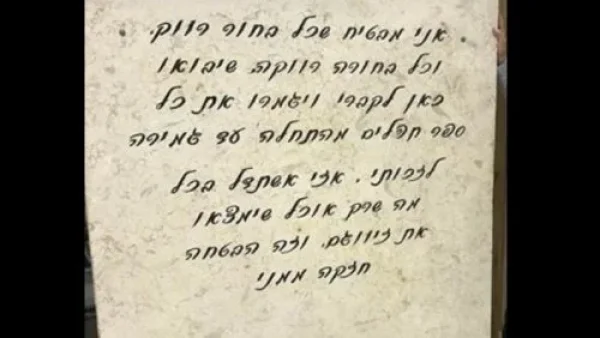 אני מבטיח שכל בחור רווק.
וכל בחורה רווקה. שיבואו
כאן לקברי ויגמרו את כל
ספר תהלים מהתחלה עד גמירה
לזכותי. אזי אשתדל בכל
מה שרק אוכל שימצאו
את זיווגם. וזה הבטחה
חזקה ממני